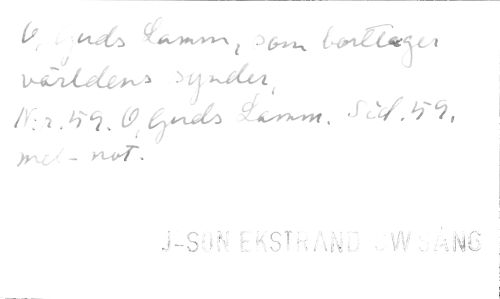 O, Guds Lamm, som borttager
världens synder,
N:r. 59. O, Guds Lamm. Sid. 59.
mel-not.
J-SON EKSTRAND JW SÅNG